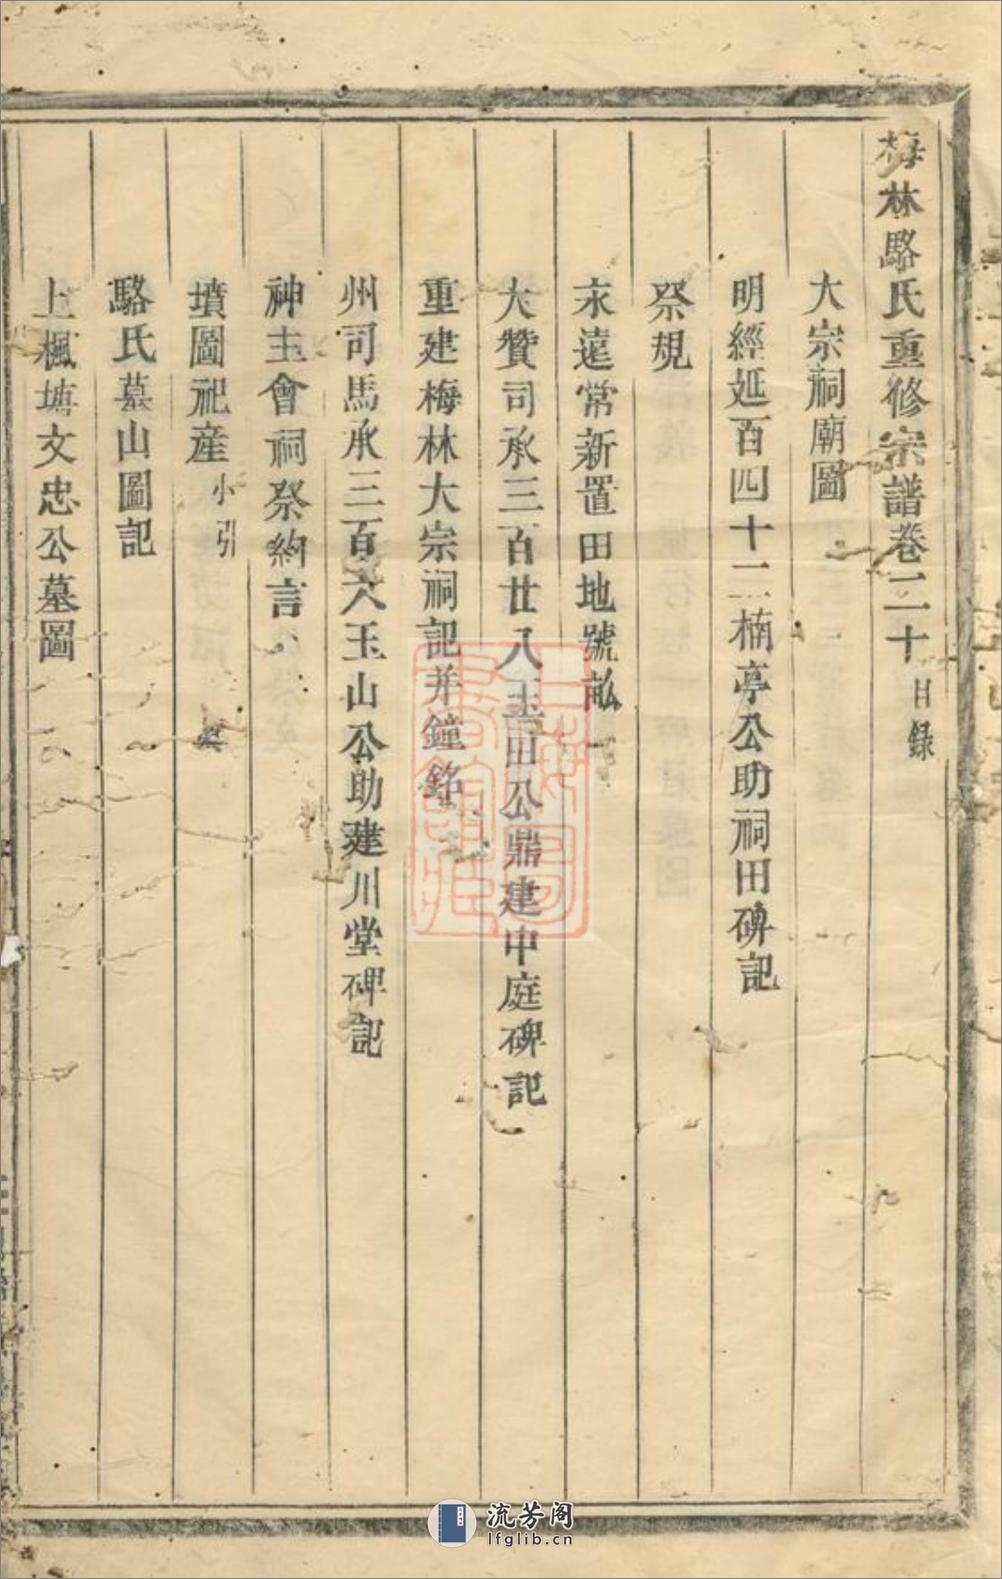 梅林駱氏重修宗譜卷二十 目錄
大宗祠廟圖
明經延百四十二楠亭公助祠田碑記
祭規
永遠常新置田地號畝
大贊司承三百廿八玉田公鼎建中庭碑記
重建梅林大宗祠記并鐘銘
州司馬承三百六玉山公助建川堂碑記
神主會祠祭約言
墳圖祀產小引
駱氏墓山圖記
上楓塘文忠公墓圖
流芳阁
lfglib.cn